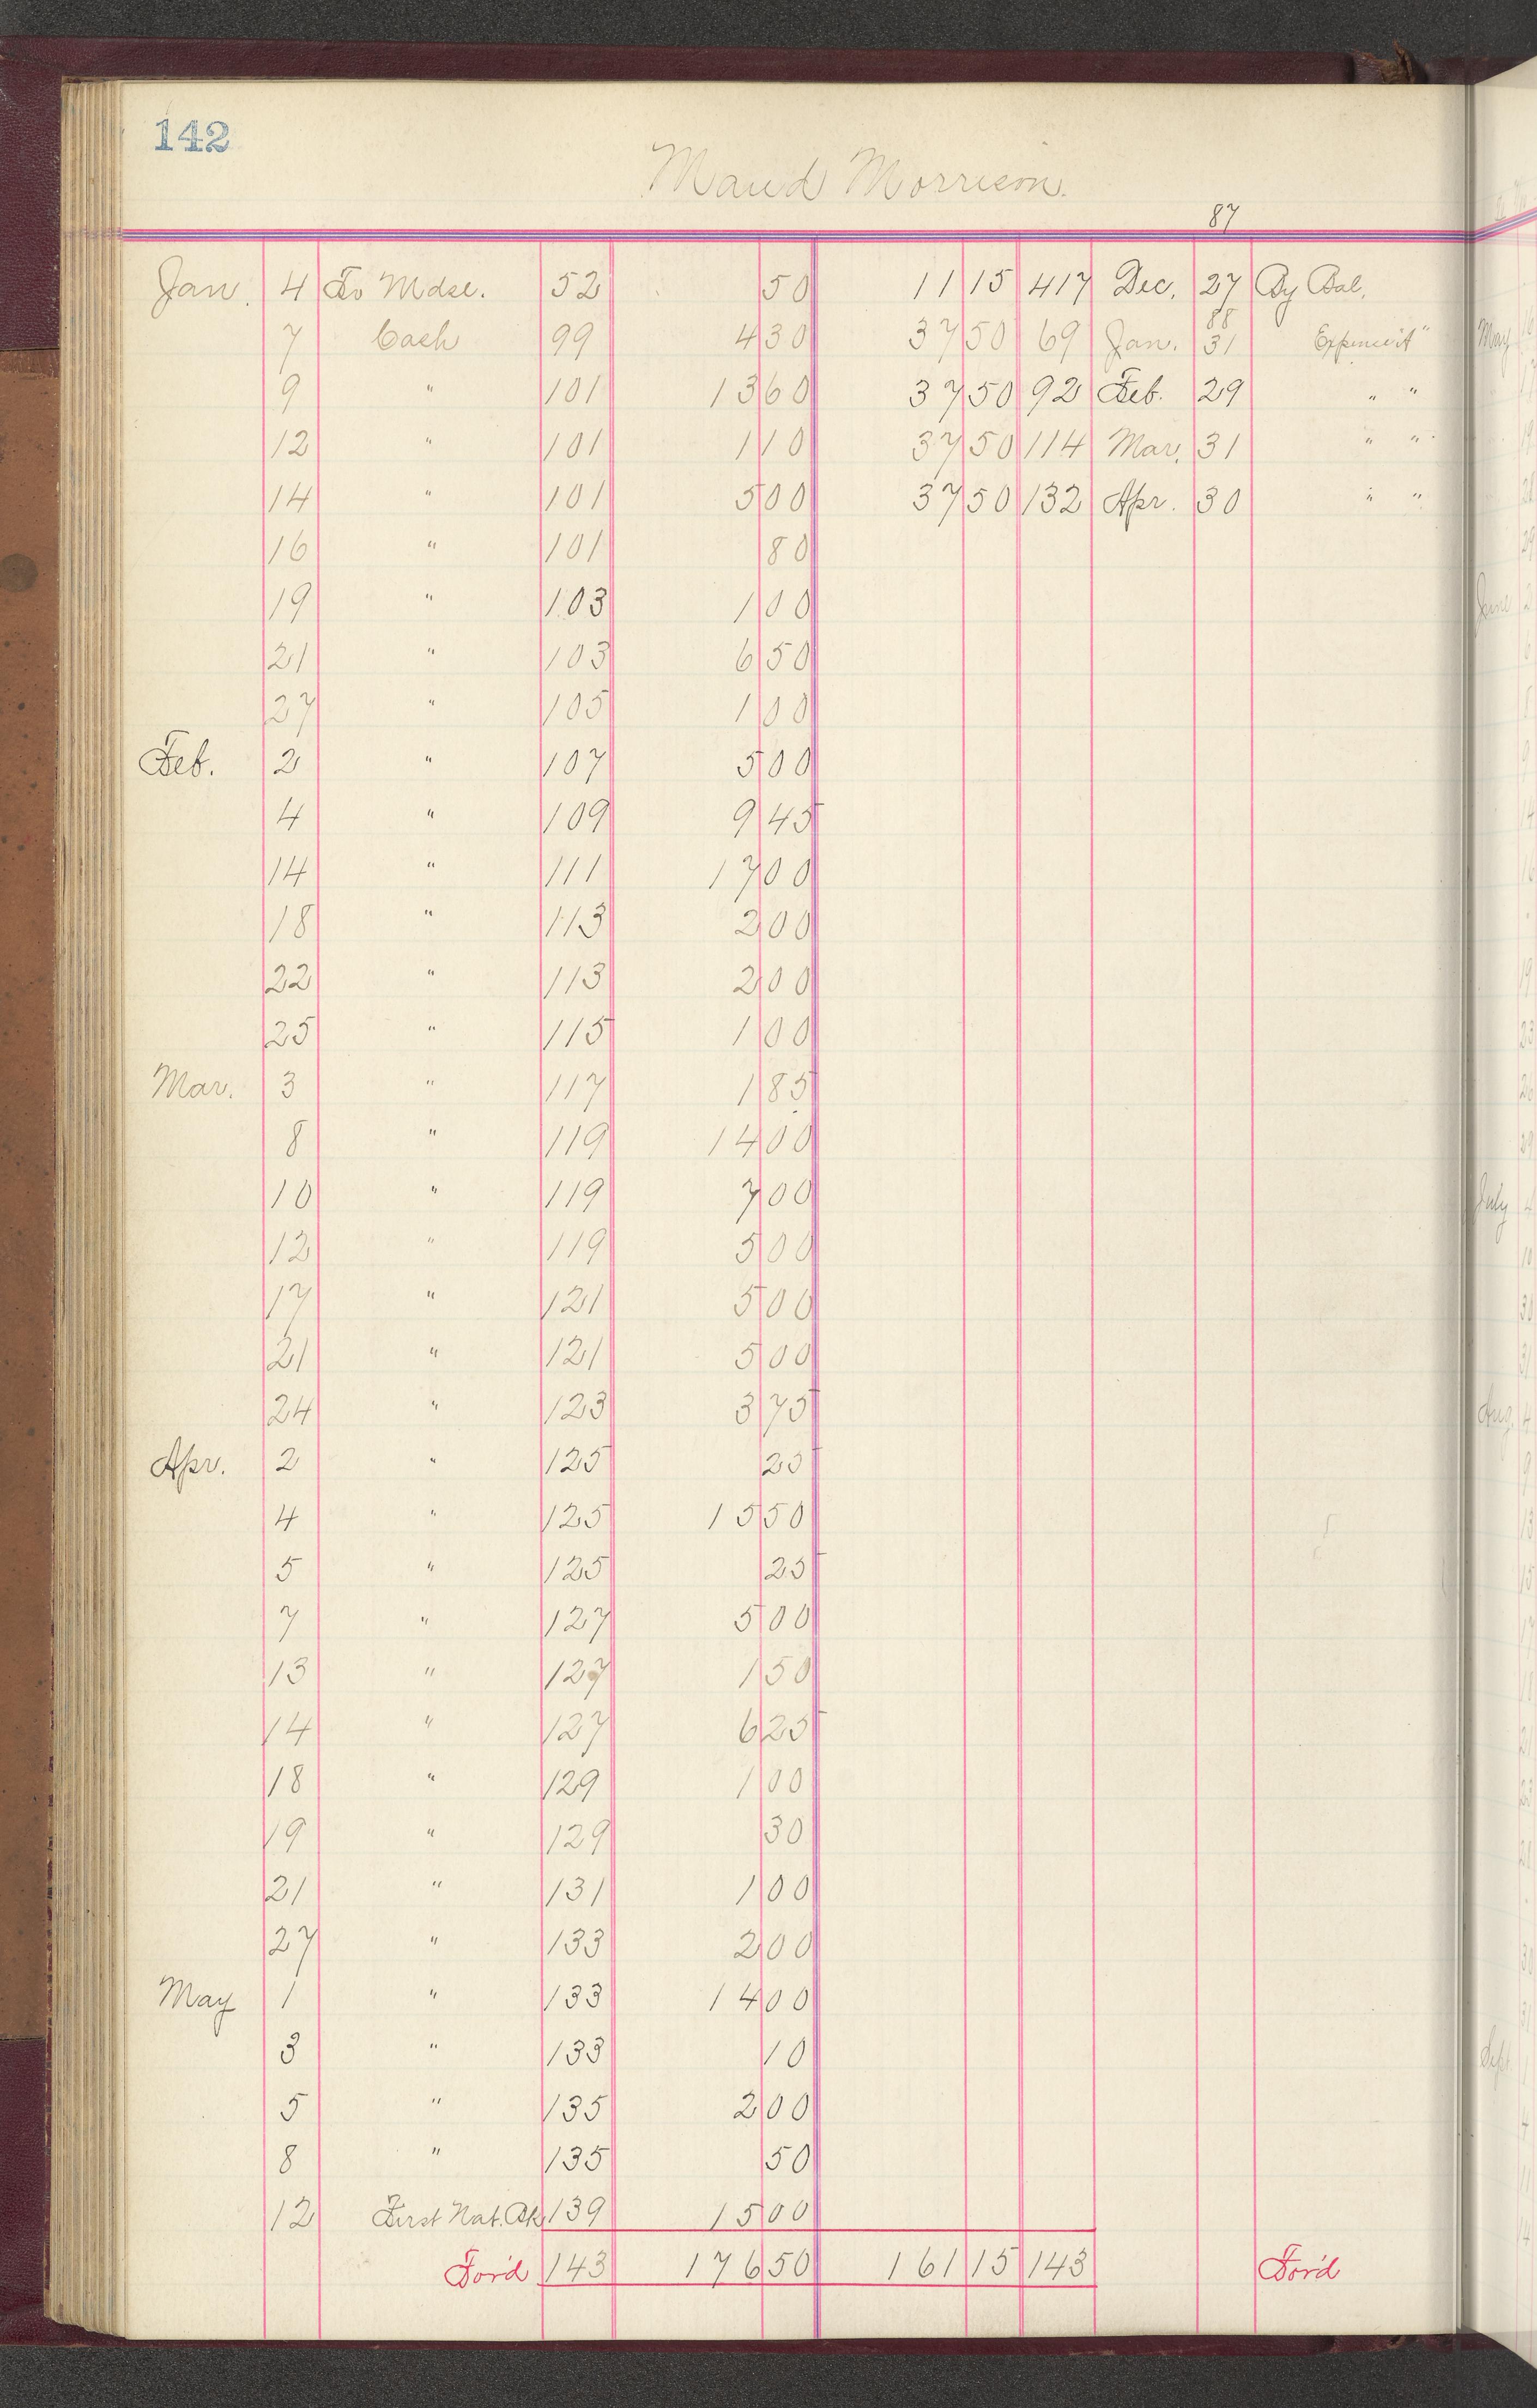 142
Maud Morrison.
87
Jan. 4 To Mdse. 52 50 11 15 417 Dec. 27 By Bal.
88
7 Cash 99 4 30 37 50 69 Jan. 31 "
9 " 101 13 60 37 50 92 Feb. 29 " "
12 " 101 1 10 37 50 114 Mar. 31 " "
14 " 101 5 00 37 50 132 Apr. 30 " "
16 " 101 80
19 " 103 1 00
21 " 103 6 50
27 " 105 1 00
Feb. 2 " 107 5 00
4 " 109 9 45
14 " 111 17 00
18 " 113 2 00
22 " 113 2 00
25 " 115 1 00
Mar. 3 " 117 1 85
8 " 119 14 00
10 " 119 7 00
12 " 119 5 00
17 " 121 5 00
21 " 121 5 00
24 " 123 3 75
Apr. 2 " 125 25
4 " 125 15 50
5 " 125 25
7 " 127 5 00
13 " 127 1 50
14 " 127 6 25
18 " 129 1 00
19 " 129 30
21 " 131 1 00
27 " 133 2 00
May 1 " 133 14 00
3 " 133 10
5 " 135 2 00
8 " 135 50
12 First Nat. Bk 139 15 00
For'd 143 176 50 161 15 143 For'd